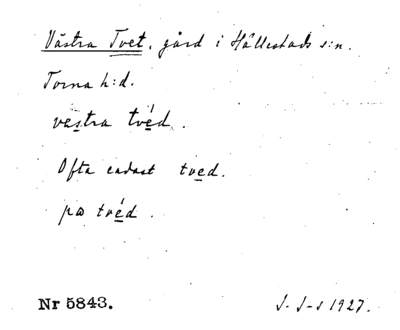 Västra Tvet, gård i Hällestads s:n.
Torna h:d.
vastra tvéd.
Ofta endast tved.
pa tvéd.
Nr 5843.
J. J-s 1927.